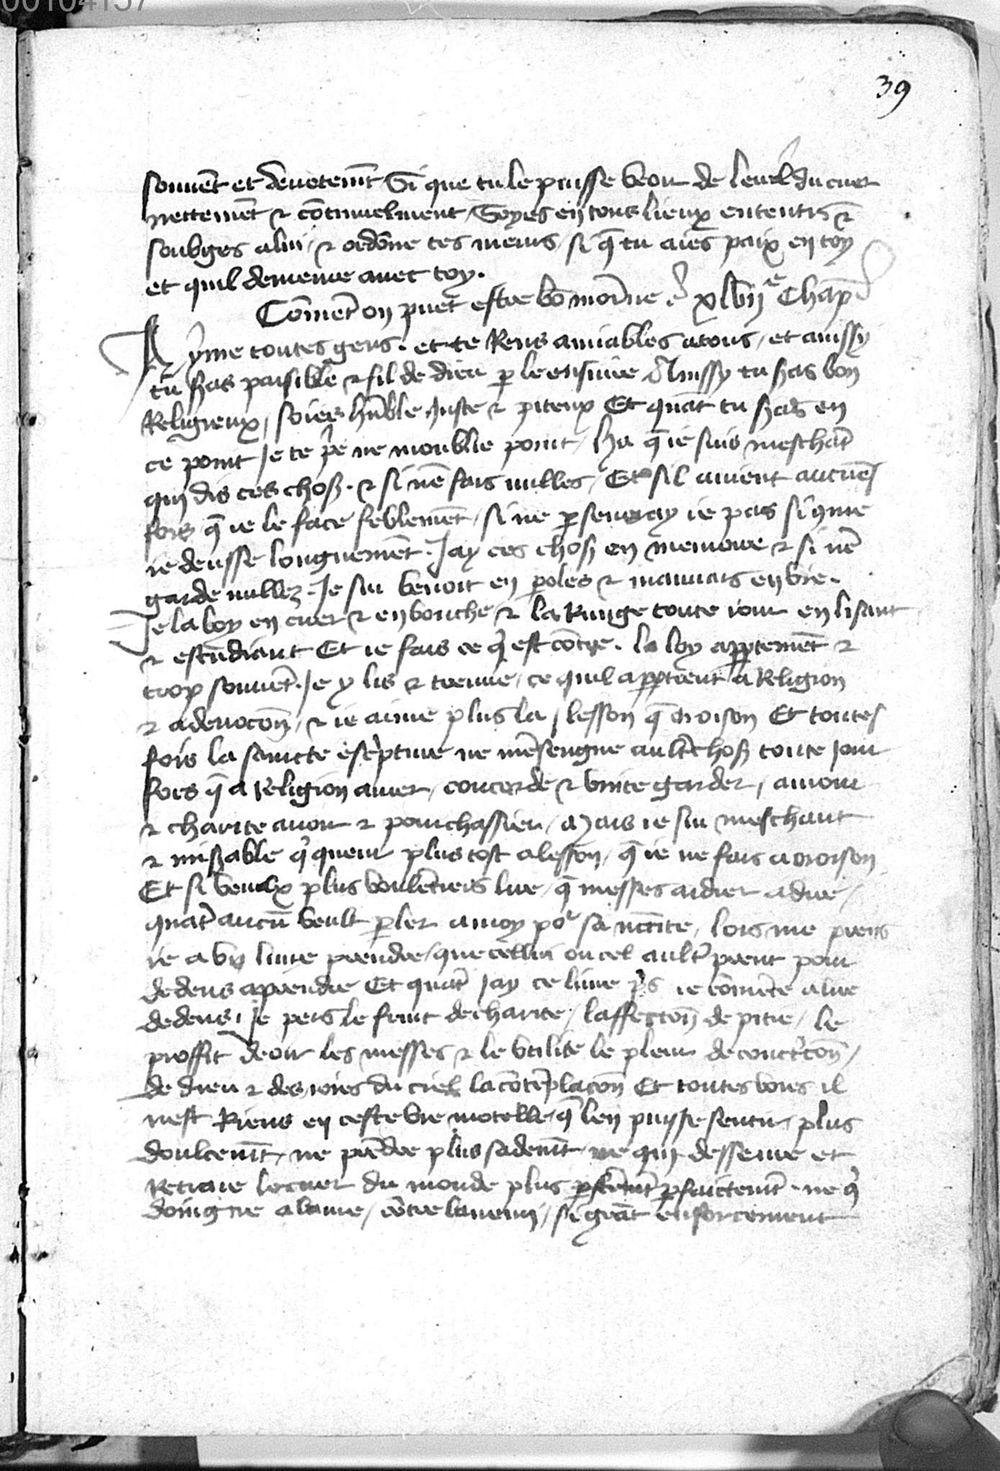 00104157
39
souvent et devotemt Si que tu le puisse veoir de leuel du cuer
nettemēt & cōtinuelment / Soyes en tous lieux ententis &
soubges a lui / & ordōne tes meurs / si q̄ tu aies paix en toy
et quil demeure avec toy .
Cōment on puet estre bō moinne xlvii e Chap
Ayme toutes gens . et te Rens amiables a tous / et aussy
tu seras paisible & fil de dieu p le ensuivre Aussy tu seras bon
Religieux / soies hūble Juste & piteux Et quāt tu seras en
ce point Je te p̄e ne moublie point / Ha q̄ ie suis meschāt
qui dis ces chos . & si nē fais nulles / Et sil avient aucunes
fois q̄ ie le face feblemēt / si ne pseveray ie pas si cōme
ie deusse longuemēt . Jay ces chos en memoire & si nē
garde nullez . Je sui benoit en poles & mauvais en vie .
Je la loy en cuer & en bouche & la Runge toute iour en lisant
& estudiant Et ie fais ce q̄ est cōtre . la loy appertemēt &
trop souvent . Je y lis & treuve / ce quil appertient a Religion
& a devocon / & ie aime plus la lesson q̄ oroison Et toutes
fois la saincte escripture ne mēseugne aultre chos toute Jour
fors q̄ a Religion amer / concorde & unite garder / amour
& charite avoir & pourchassier / Mais ie sui meschant
& misable q̄ queur plus tost a lesson / q̄ ie ne fais a oroison
Et si veulx plus voulētiers lire / q̄ messes aidier a dire /
quāt aucū veult pler a moy po sa nccite / lors me prens
ie a un livre prendre / que cellui ou cel aultre prent pour
dedens aprendre Et quāt Jay ce livre pris ie cōmēce a lire
dedens / Je pers le fruit de charite / laffection de pitie / le
proffit deoir les messes & le utilite le pleur de conctricon /
de dieu & des ioies du ciel la cōtēplacon Et toutes voies il
nest Riens en ceste vie mortelle / q̄ len puisse sentir / plus
doulcemt / ne prēdre plus sademt / ne qui desseure et
Retraie le cuer du monde plus pfaictemt . ne q̄
doingne a lame / cōtre lanemi / si grāt enforcement